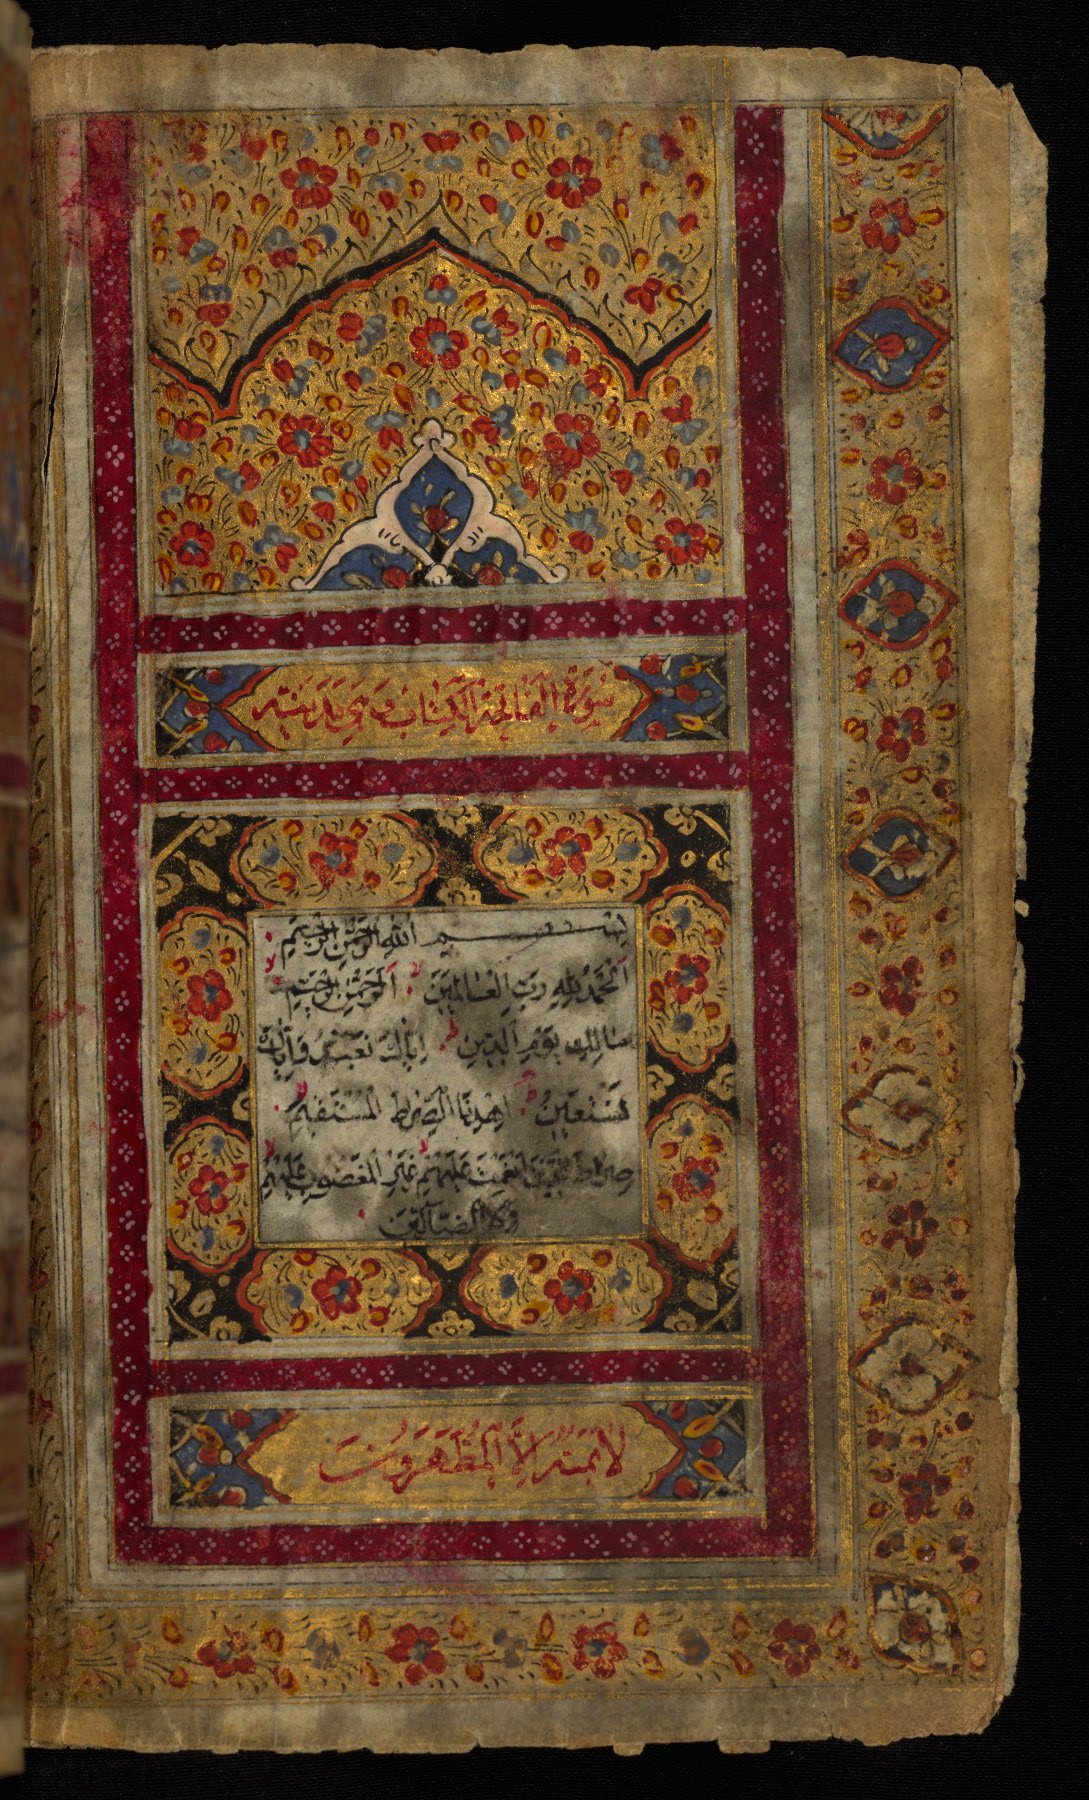 سُورَةُ الفَاتِحَةِ الكِتَابِ وَهِيَ مَدَنِيَّة
بِسْمِ اللَّهِ الرَّحْمَنِ الرَّحِيمِ
اَلْحَمْدُ لِلَّهِ رَبِّ الْعَالَمِينَ لا اَلرَّحْمَنِ الرَّحِيمِ لا
مَالِكِ يَوْمِ الدِّينِ ط اِيَّاكَ نَعْبُدُ وَاِيَّاكَ
نَسْتَعِينُ ط اِهْدِنَا الصِّرَاطَ الْمُسْتَقِيمَ لا
صِرَاطَ الَّذِينَ اَنْعَمْتَ عَلَيْهِمْ لا غَيْرِ الْمَغْضُوبِ عَلَيْهِمْ لا
وَلَا الضَّالِّينَ
لَا يَمَسُّهُ إِلَّا الْمُطَهَّرُونَ